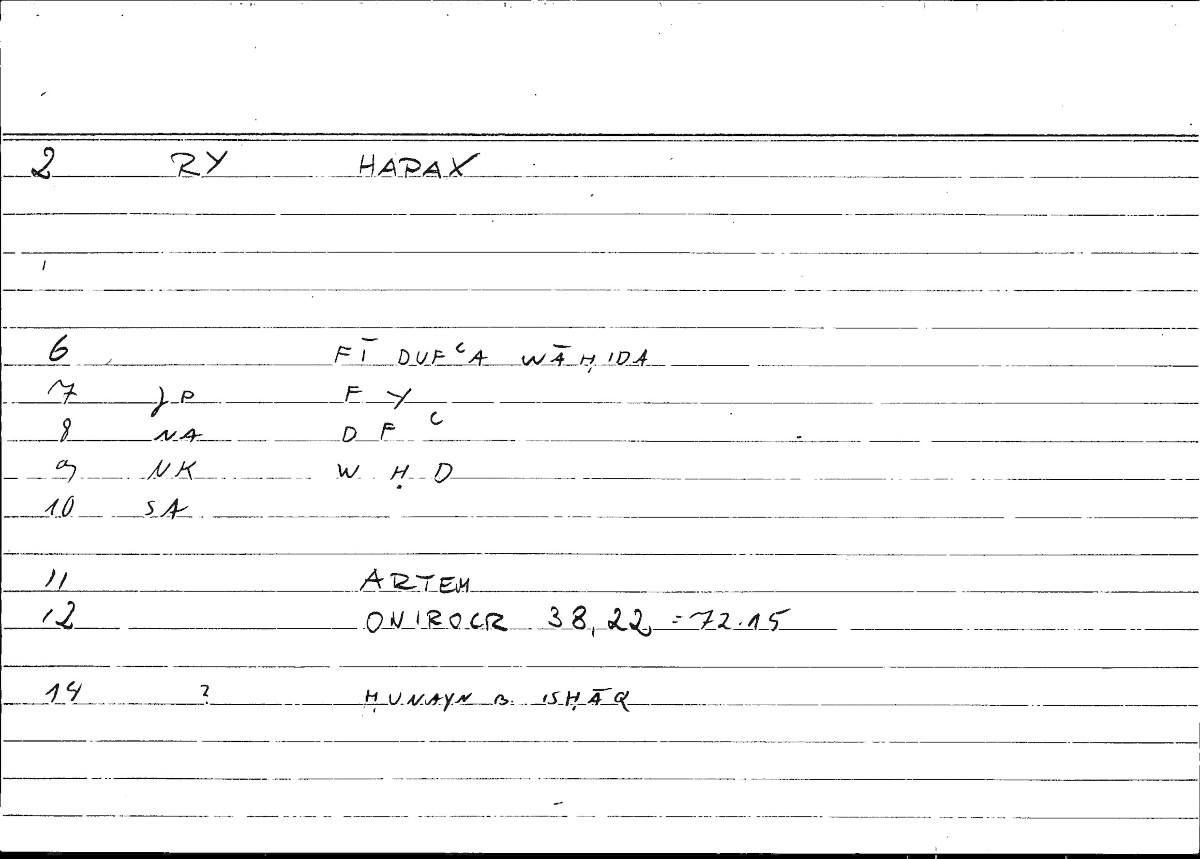 2 RY HAPAX
6 FĪ DUFᶜA WĀḤIDA
7 JP F Y
8 NA D F ᶜ
9 NK W Ḥ D
10 SA
11 ARTEM
12 ONIROCR 38,22 = 72.15
14 ? ḤUNAYN B. ISḤĀQ